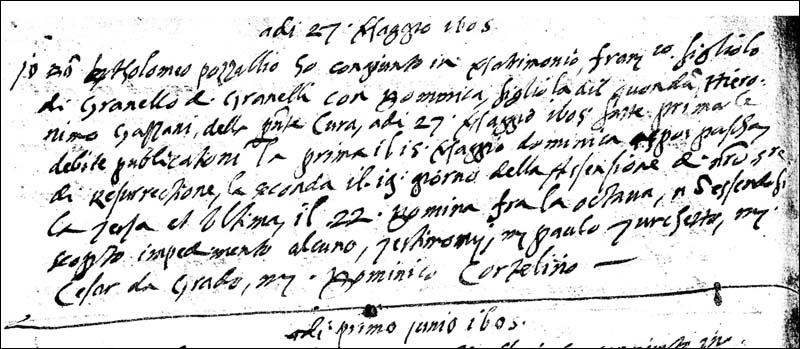 adi 27. Maggio 1605
Io Bartholomeo pozzallio ho congiunto in Matrimonio, franco figliolo
di Granello de Granelli con Dominica, figliola del quondã Hiero-
nimo Gastani, della pñte Cura, adi 27. Maggio 1605 fatte prima le
debite publicationi la prima il 15. Maggio dominica pascha
di Resurrectione, la seconda il 19. giorno della Assensione di nro Sre
la terza et Ultima, il 22. Domina fra la octava, n sessendosi
scopto impedimento alcuno, testimonij, mº paulo Turchetto, mº
Cesar da Grado, mº Dominico Cortelino —
adi primo junio 1605.